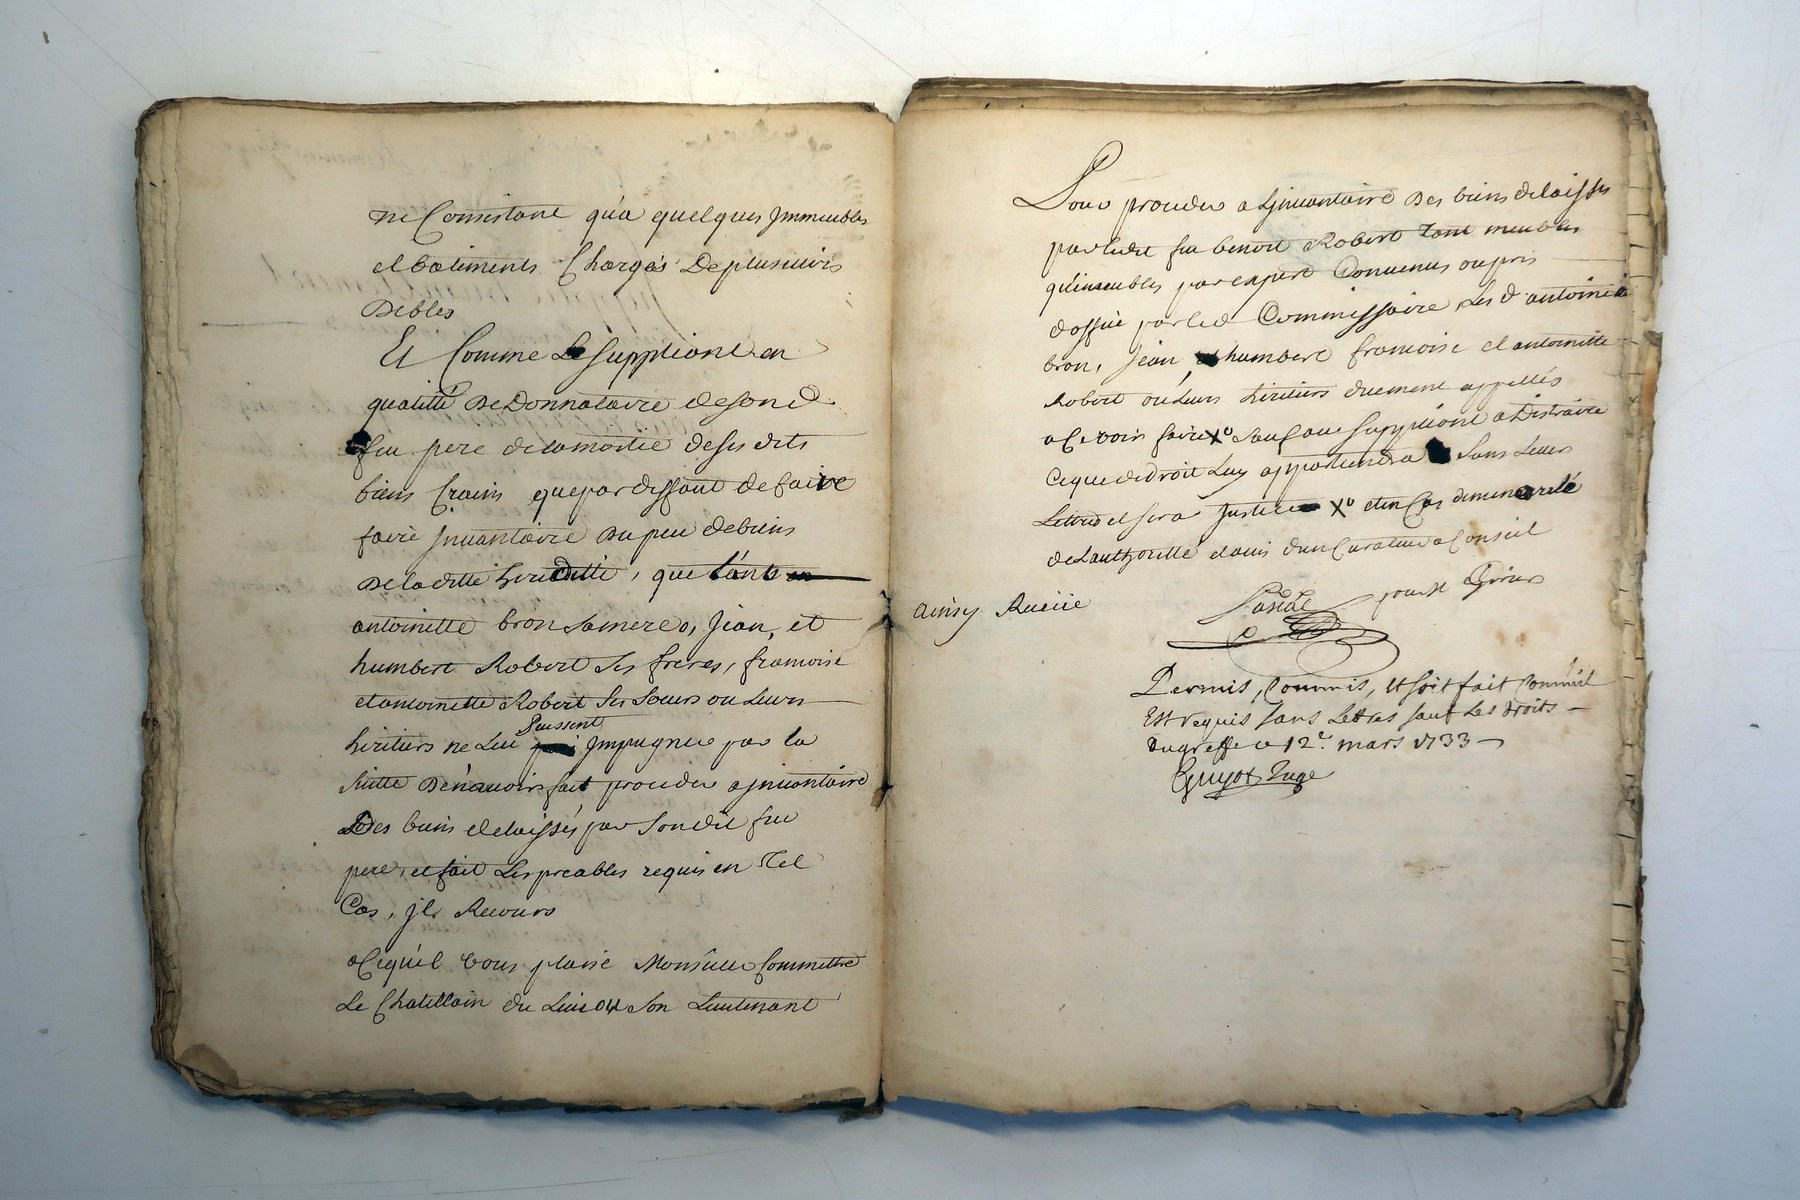 ne Consistant qu'a quelques Jmmeubles
et batiments Chargés De plusieurs
Debtes
Et Comme Le suppliant en
qualitté De Donnataire de son d.
feu pere de la moitié de ses dits
biens Craint que par deffaut de faire
faire Jnuantaire Du peu de biens
De la ditte hereditté, que tant
antoinette bron sa mere, Jean, et
humbert Robert Ses freres, francoise
et antoinette Robert Ses Soeurs ou Leurs
heritiers ne Luy Puissent Jmpugner par la
suitte De n'auoir fait proceder a jnuontaire
Des biens delaissés par Son dit feu
pere, et fait Les preables requis en Tel
Cas, jl a Recours
a Ce qu'il Vous plaise Monsieur Commettre
Le Chatellain du Lieu ou Son Lieutenant
Pour proceder a Ljnuantaire Des biens delaisses
par ledit feu benoit Robert tant meubles
qu'imeubles par expert Conuenus ou pris
d'office par led Commissaire, Les d antoinette
bron, Jean, humbert francoise et antoinette
Robert ou Leurs heritiers duement appellés
a Ce voir faire Xo sauf au suppliant a Distraire
Ce que de Droit Luy appartiendra Sans Lettres
et sera Justice Xo et en Cas de minorité
de L'authoritté et auis d'un Curateur a Conseil
ainsy
Pascal pour
Permis, Commis, et soit fait Comme il
Est requis sans Lettres sauf Les droits
du greffe ce 12e. mars 1733
Guyot Juge